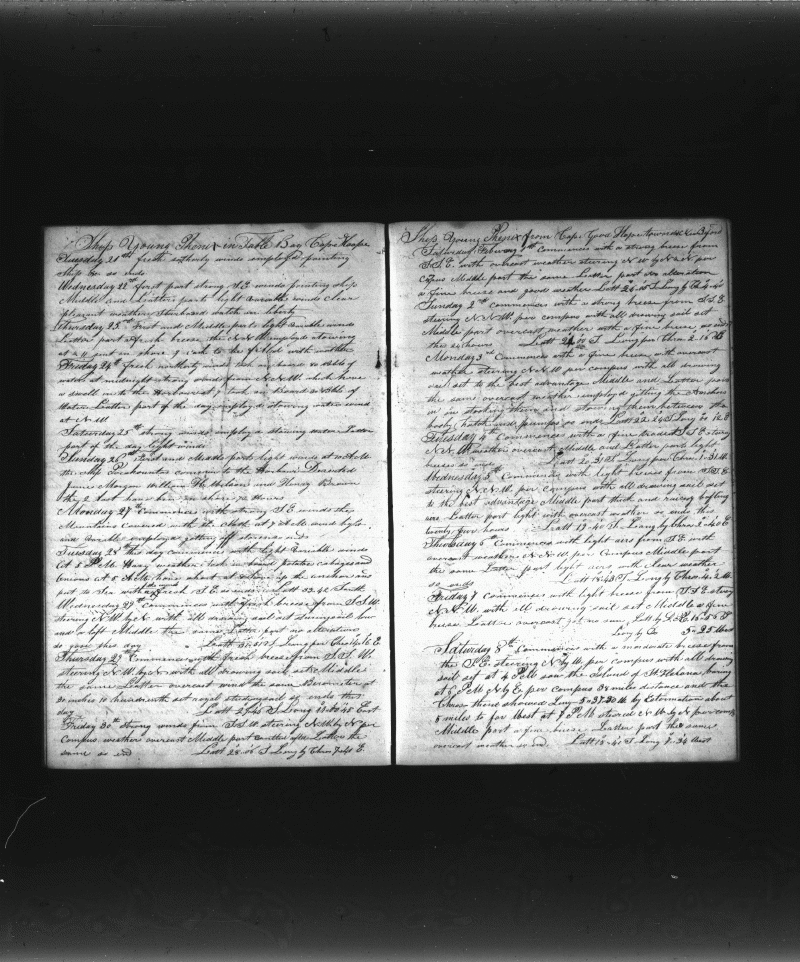 Ship Young Phenix in Table Bay Cape Hoope
Tuesday 21st fresh sutherly winds employed painting
ship &c so ends
Wednesday 22nd first part strong S E winds painting ship
Middle and Latter parts light variable winds clear
pleasant weather Starboard watch on liberty
Thursday 23rd First and Middle parts light variable winds
Latter part fresh breeze from N N W employed stowing
at sent on shore raft to be filled with water
Friday 24th fresh northerly winds took on board 50 bbls of
water at midnight strong winds from N.N.W. which hove
a swell in to the Harbour at 7 took on Board bbls of
Water Latter part of the day employed stowing water wind
at N.W.
Saturday 25th strong winds employed stowing water Latter
part of the day light winds
Sunday 26th First and Middle parts light winds at 10 A.M.
the Ship Pocahontas comeing to the Harbour Deserted
James Morgan William H. Wilson and Henry Brown
the 2 last have been on shore 72 hours
Monday 27th Commences with strong S.E winds the
Mountains Covered with the cloth at 7 A.M. winds light
and variable employed getting off stores so ends
Tuesday 28th this day commences with light variable winds
at 5 P.M. Hazy weather took on board potatoes cabages and
onions at 8
put to Sea with a fresh S.E so ends Latt 33.42 South
Wednesday 29th Commences with fresh breeze from S.S.W.
stering N.W. by N with all drawing sail set
and a left Middle the same Latter part no alterations
so ends the day Latt 31.01 S. Long per Chro 16.16 E.
Thursday 29 Commences with fresh breeze from S.S.W.
stering N.W. by N. with all drawing sail set Middle
the same Latter overcast with the same Barometer at
30 inches 10 hundredth set royal studding sail so ends this
day Latt 29.45 S Long 13.40.45 East
Friday 30th strong winds from S.S.W stering N.W. by N per
Compus weather overcast Middle part Latter the
same so ends Latt 28.06 S Long by Chro E.
Ship Young Phenix from Cape Good Hope towards New Bedford
Saturday February 1st Commences with a strong breeze from
S.S.E. with overcast weather stering N.W by N per
Compus Middle part the same Latter part no alteration
a fine breeze and good weather Latt 26.10 S Long by Ch 4.40
Sunday 2nd commences with a strong breeze from S.S.E
stering N.N.W. per compus with all drawing sail set
Middle part overcast weather with a fine breeze so ends
this 24 hours Latt 24.17 S. Long per Chro 2.16 E
Monday 3rd Commences with a fine breeze with overcast
weather stering N.N.W per compus with all drawing
sail set to the best advantage Middle and Latter parts
the same overcast weather employed getting the Anchors
in un stocking them and stowing them between the
booby hatch and pumps so ends Latt 22.24 S Long 0.12 E
Tuesday 4th Commences with a fine breeze S.S.E stering
N.N.W overcast weather Middle and Latter part light
breeze so ends Latt 20.31 S. Long per Chro 1.31 W.
Wednesday 5th Commences with light breeze from S.S.E.
stering N.N.W. per Compus with all drawing sail set
to the best advantage Middle part thick and rainey baffling
airs Latter part light with overcast weather so ends this
twenty four hours Latt 19.40 S. Long by Chro 2.40
Thursday 6th Commences with light airs from S.E with
overcast weather N.N.W. per Compus Middle part
the same Latter part light airs with clear weather
so ends Latt 18.43 S. Long by Chro 4.2 W.
Friday 7 Commences with light breeze from S.S.E stering
N.N.W. with all drawing sail set Middle a fine
breeze Latter overcast got no sun Latt by D.R. 16.56 S
Long by Do 5.25 West
Saturday 8th Commences with a moderate breeze from
the S.E. stering N by W. per compus with all drawing
sail set at 4 P.M saw the Island of St Helena bearing
at 6 P.M N by E. per compus 38 miles distance and the
Chronometer showed Long 5.37.30 W. by Estemation about
5 miles to far West at 7 P.M stered N.W. by N per comps
Middle part a fine breeze Latter part the same
overcast weather so ends Latt 15.40 S. Long 7.34 West